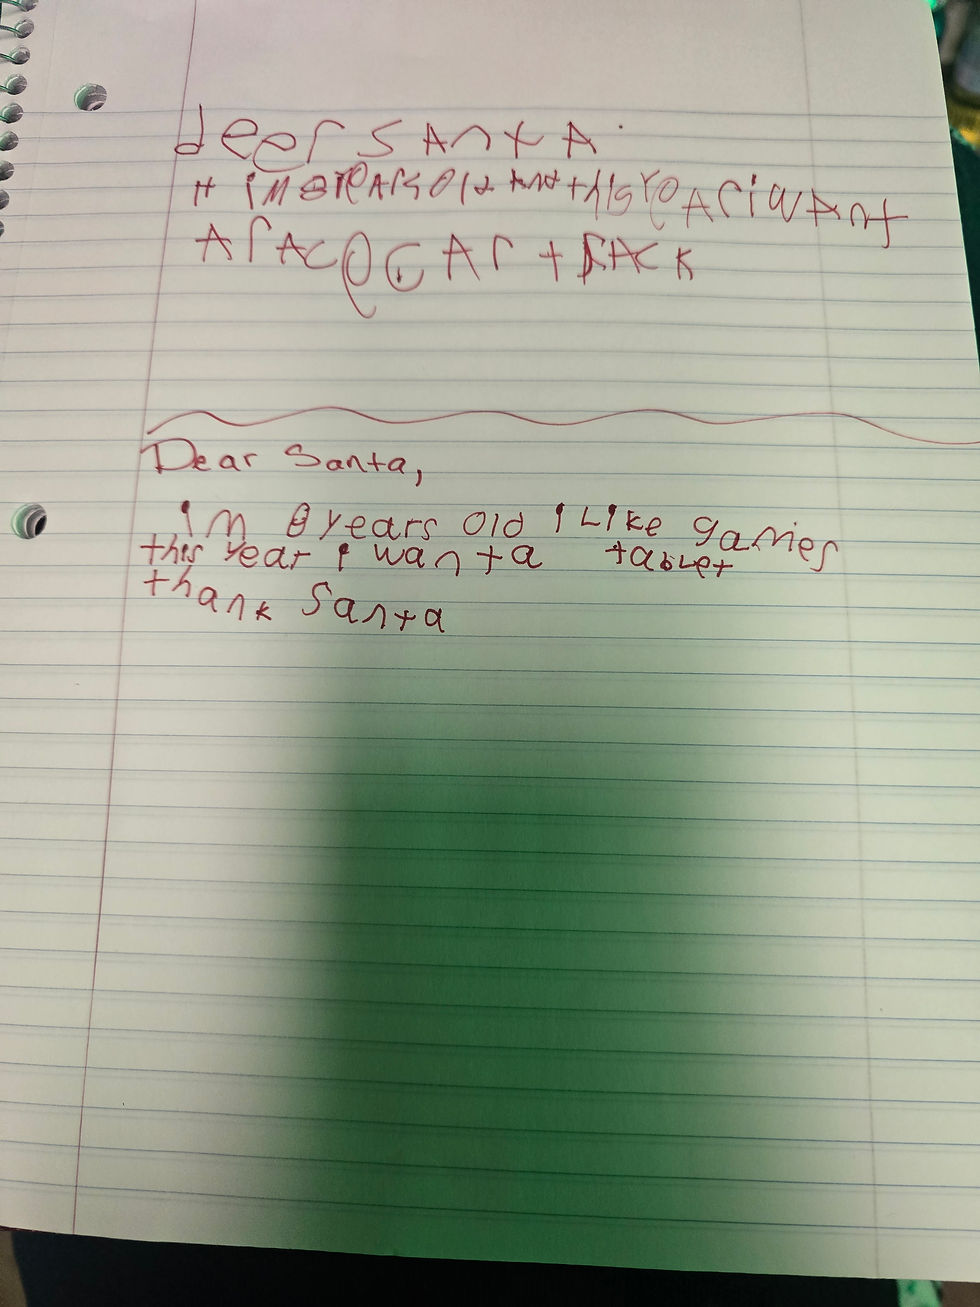 deer SAntA.
im 8 yeArs Old And this yeAr i wAnt
A rAce CAr trAcK
Dear Santa,
im 8 years old i Like games
this year i want a tablet
thank Santa